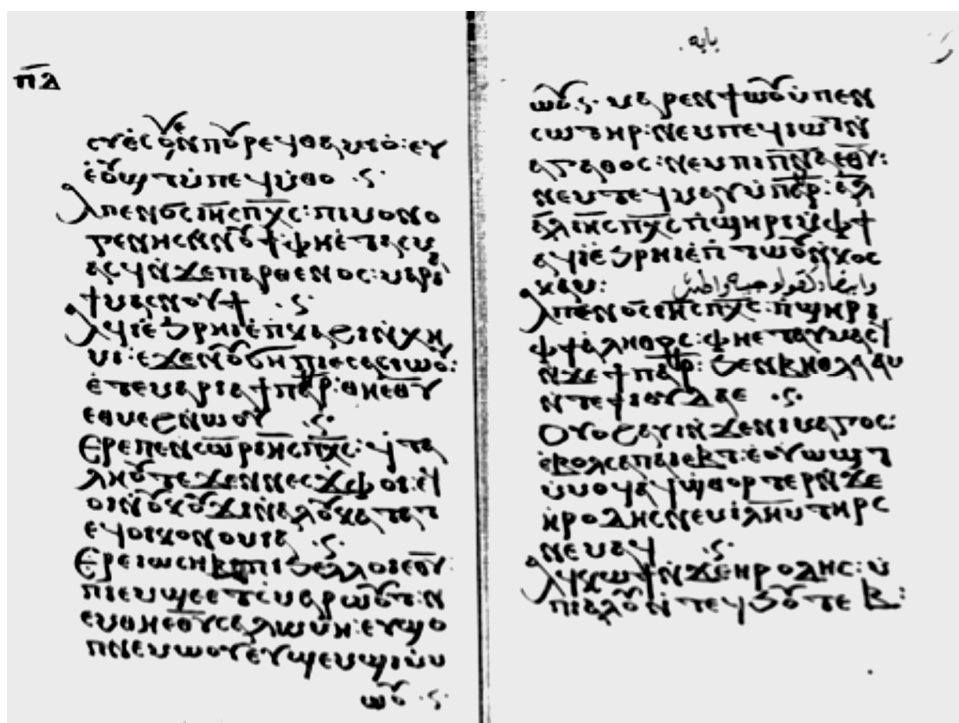 ⲡⲇ
ⲥⲩⲉⲥⲟⲛ ⲛⲡⲟⲣⲉϥⲑⲁⲙⲓⲟ: ⲉⲩ
ⲉⲟⲩⲱϣⲧ ⲙⲡⲉϥⲙⲑⲟ .ⲥ.
Ⲁⲡⲉⲛⲟ̅ⲥ̅ ⲓⲏ̅ⲥ̅ ⲡⲭ̅ⲥ̅: ⲡⲓⲙⲟⲛⲟ
ⲅⲉⲛⲏⲥ ⲛⲛⲟⲩϯ: ⲫⲏⲉⲧⲁⲥⲙ
ⲁⲥϥ ⲛϫⲉ ⲡⲁⲣⲑⲉⲛⲟⲥ: ⲙⲁⲣⲓ
ϯⲙⲁⲥⲛⲟⲩϯ .ⲥ.
Ⲁϥⲓ̀ⲉ̀ϧⲣⲏⲓ ⲉ̀ⲡⲕⲁϩⲓ ⲛⲭⲏ
ⲙⲓ: ⲉϫⲉⲛ ⲟⲩϭⲏⲡⲓ ⲉⲥⲁⲥⲓⲱⲟⲩ:
ⲉ̀ⲧⲉ ⲙⲁⲣⲓⲁ ϯⲡⲁ̅ⲣ̅: ⲑⲏⲉⲑ̅ⲩ̅
ⲉⲑⲙⲉϩ ⲛ̀ⲱⲟⲩ .ⲥ.
Ⲉⲣⲉ ⲡⲉⲛⲥⲱ̅ⲣ̅ ⲓⲏ̅ⲥ̅ ⲡⲭ̅ⲥ̅: ϥⲧⲁ
ⲗⲏⲟⲩⲧ ⲉϫⲉⲛ ⲛⲉⲥϫⲫⲟⲓ: ⲉϥ
ⲟⲓ ⲛⲟⲩⲕⲟⲩϫⲓ ⲛⲁⲗⲟⲩ
ⲉϥⲟⲓⲕⲟⲛⲟⲙⲓⲁ .ⲥ.
Ⲉⲣⲉ ⲓⲱⲥⲏⲫ ⲡⲓϧⲉⲗⲗⲟ ⲉⲑ̅ⲩ̅:
ⲡⲓϩⲁⲙϣⲉ ⲉⲧⲥⲙⲁⲣⲱⲟⲩⲧ: ⲛ
ⲉⲙ ⲑⲏⲉⲑ̅ⲩ̅ ⲥⲁⲗⲱⲙⲏ: ⲉⲩϣⲟ
ⲡ ⲛⲉⲙⲱⲟⲩ ⲉⲩϣⲉⲙϣⲓ ⲙ̀ⲙ
ⲱⲟⲩ .ⲥ.
بابه
ⲱⲟⲩ .ⲥ. ⲙⲁⲣⲉⲛϯⲱⲟⲩ ⲙ̀ⲡⲉⲛ
ⲥⲱⲧⲏⲣ: ⲛⲉⲙ ⲡⲉϥⲓⲱⲧ ⲛ̀
ⲁⲅⲁⲑⲟⲥ: ⲛⲉⲙ ⲡⲓⲡ̅ⲛ̅ⲁ̅ ⲉⲑ̅ⲩ̅:
ⲛⲉⲙ ⲧⲉϥⲙⲁⲩ ⲙ̀ⲡⲁ̅ⲣ̅: ⲁ̅ⲗ̅
ⲁ̅ⲗ̅ ⲓⲏ̅ⲥ̅ ⲡⲭ̅ⲥ̅ ⲡ̀ϣⲏⲣⲓ ⲙ̀ⲫϯ
ⲁϥⲓ̀ⲉ̀ϧⲣⲏⲓ ⲉ̀ⲡⲧⲱⲟⲩ ⲛⲭⲟⲥ
ⲕⲁⲙ:
وايضا تقول جيدا واطس
Ⲁⲡⲉⲛⲟ̅ⲥ̅ ⲓⲏ̅ⲥ̅ ⲡⲭ̅ⲥ̅: ⲡ̀ϣⲏⲣⲓ
ⲙ̀ⲫϯ ⲁⲗⲏⲑⲱⲥ: ⲫⲏⲉⲧⲁⲩⲙⲁⲥϥ
ⲛ̀ϫⲉ ϯⲡⲁ̅ⲣ̅: ϧⲉⲛ ⲃⲏⲑⲗⲉⲉⲙ
ⲛ̀ⲧⲉ ϯⲓⲟⲩⲇⲉⲁ .ⲥ.
Ⲟⲩⲟϩ ⲁⲩⲓ̀ ⲛ̀ϫⲉ ⲛⲓⲙⲁⲅⲟⲥ:
ⲉ̀ⲃⲟⲗ ⲥⲁ ⲡⲉⲓⲉⲃⲧ: ⲉⲟⲩⲱϣⲧ
ⲙ̀ⲙⲟϥ ⲁϥϣⲑⲟⲣⲧⲉⲣ ⲛ̀ϫⲉ
ⲏ̀ⲣⲟⲇⲏⲥ ⲛⲉⲙ ⲓⲗⲏⲙ ⲧⲏⲣⲥ
ⲛⲉⲙⲁϥ .ⲥ.
Ⲁϥⲕⲱϯ ⲛ̀ϫⲉ ⲏⲣⲟⲇⲏⲥ: ⲙ̀
ⲡⲓⲁⲗⲟⲩ ⲛ̀ⲧⲉϥϧⲟⲑⲃⲉϥ: